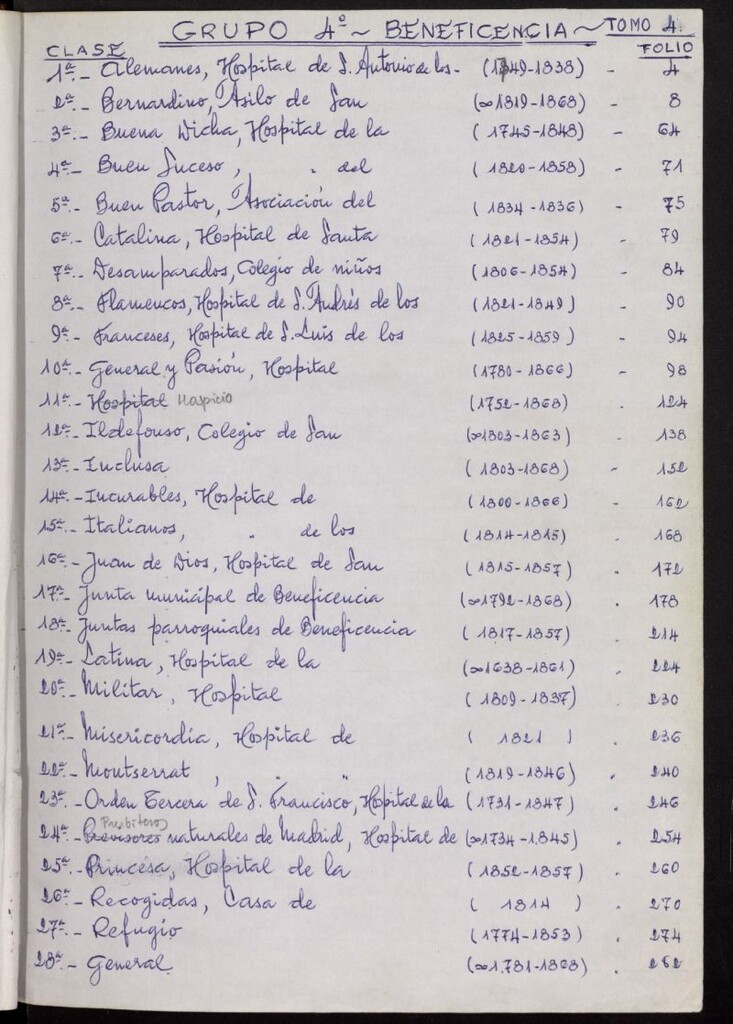 GRUPO 4º ~ BENEFICENCIA ~ TOMO 4.
CLASE FOLIO
1ª.- Alemanes, Hospital de S. Antonio de los.- (1819-1838) - 4
2ª.- Bernardino, Asilo de San (∞1819-1868) - 8
3ª.- Buena Dicha, Hospital de la (1745-1848) - 64
4ª.- Buen Suceso, " del (1820-1858) - 71
5ª.- Buen Pastor, Asociación del (1834-1836) - 75
6ª.- Catalina, Hospital de Santa (1821-1854) - 79
7ª.- Desamparados, Colegio de niños (1806-1854) - 84
8ª.- Flamencos, Hospital de S. Andrés de los (1821-1849) - 90
9ª.- Franceses, Hospital de S. Luis de los (1825-1859) - 94
10ª.- General y Pasión, Hospital (1780-1866) - 98
11ª.- Hospital Hospicio (1752-1868) . 124
12ª.- Ildefonso, Colegio de San (∞1803-1863) . 138
13ª.- Inclusa (1803-1868) - 152
14ª.- Incurables, Hospital de (1800-1866) . 162
15ª.- Italianos, " de los (1814-1815) . 168
16ª.- Juan de Dios, Hospital de San (1815-1857) . 172
17ª.- Junta municipal de Beneficencia (∞1792-1868) . 178
18ª.- Juntas parroquiales de Beneficencia (1817-1857) . 214
19ª.- Latina, Hospital de la (∞1638-1861) . 224
20ª.- Militar, Hospital (1809-1837) . 230
21ª.- Misericordia, Hospital de ( 1821 ) . 236
22ª.- Montserrat, " " (1819-1846) . 240
23ª.- Orden Tercera de S. Francisco, Hospital de la (1731-1847) . 246
24ª.- Presbíteros naturales de Madrid, Hospital de (∞1734-1845) . 254
25ª.- Princesa, Hospital de la (1852-1857) . 260
26ª.- Recogidas, Casa de ( 1814 ) . 270
27ª.- Refugio (1774-1853) . 274
28ª.- General (∞1.781-1868) . 262